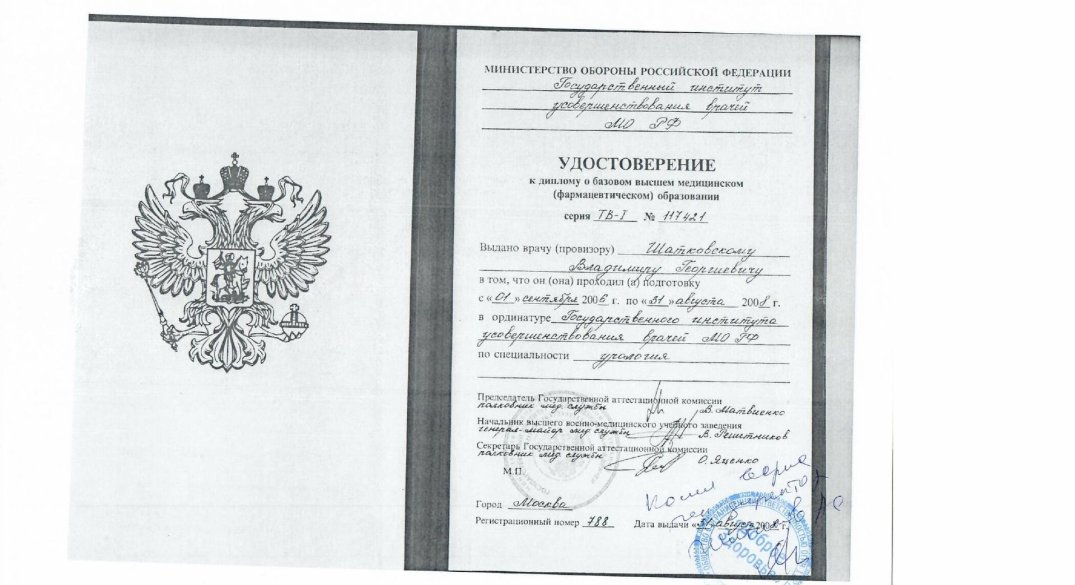 МИНИСТЕРСТВО ОБОРОНЫ РОССИЙСКОЙ ФЕДЕРАЦИИ
Государственный институт
усовершенствования врачей
МО РФ
УДОСТОВЕРЕНИЕ
к диплому о базовом высшем медицинском
(фармацевтическом) образовании
серия ТВ-I № 117421
Выдано врачу (провизору) Шатковскому
Владимиру Георгиевичу
в том, что он (она) проходил (а) подготовку
с «01» сентября 2006 г. по «31» августа 2008 г.
в ординатуре Государственного института
усовершенствования врачей МО РФ
по специальности урология
Председатель Государственной аттестационной комиссии
полковник мед. службы В. Матвиенко
Начальник высшего военно-медицинского учебного заведения
генерал-майор мед службы В. Решетников
Секретарь Государственной аттестационной комиссии
полковник мед службы О. Ященко
М.П.
Копия верна
Город Москва
Регистрационный номер 788 Дата выдачи «31» августа 2008 г.